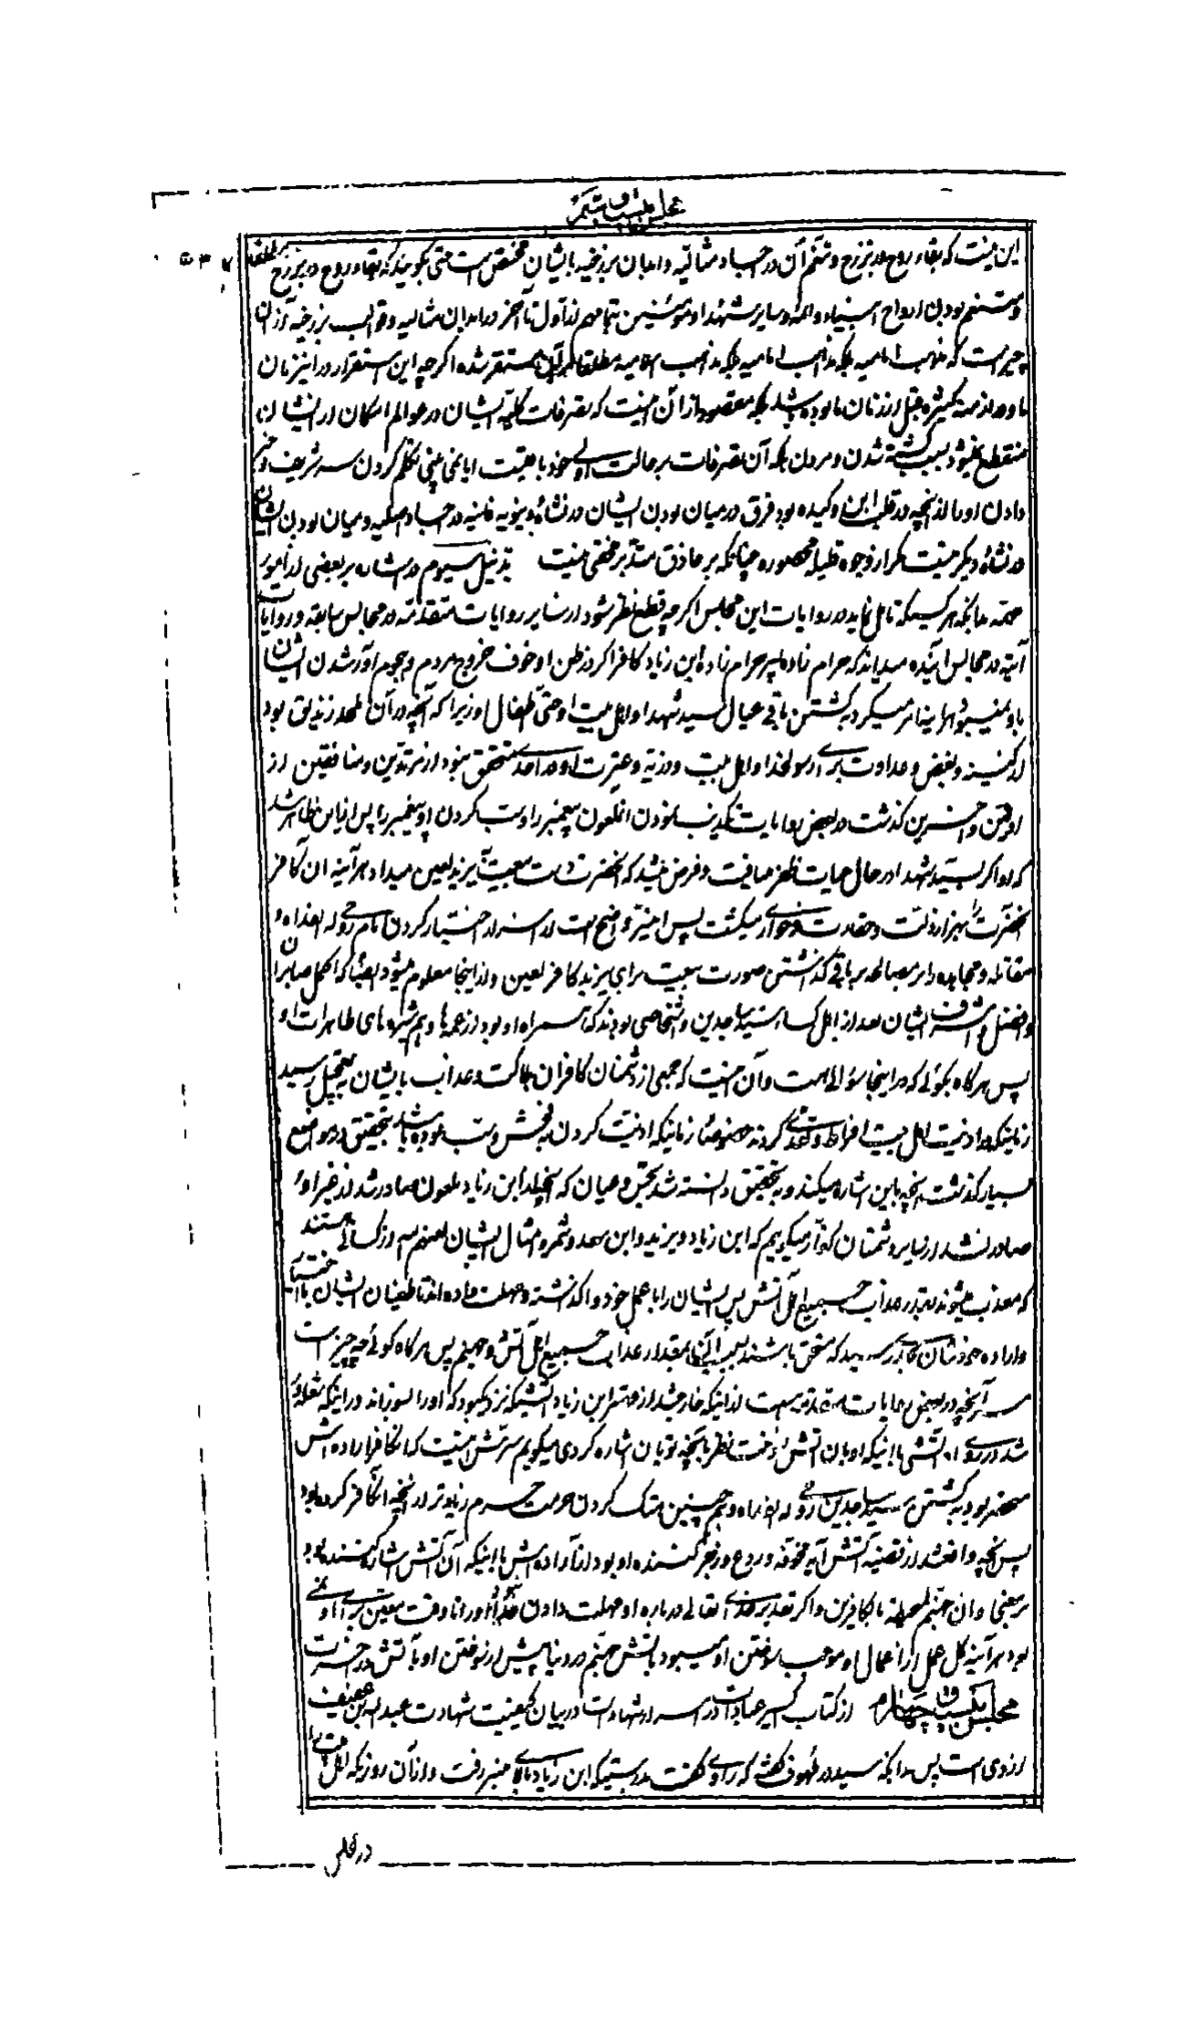 مجلس بیست و
این نیست که بقاء روح در برزخ و تنعم آن در اجساد مثالیه و ابدان برزخیه بایشان مختص است حتی بگویند که بقاء روح در برزخ
و متنعم بودن ارواح انبیاء و ائمه و سایر شهداء و مؤمنین بتمامهم از اول تا آخر در ابدان مثالیه و قوالب برزخیه از آن
چیز است که مذهب امامیه بلکه مذاهب امامیه بلکه مذاهب اسلامیه مطلقا بر آن مستقر شده اگر چه این استقرار در این زمان
ما و در ازمنه کثیره قبل از زمان ما بوده باشد بلکه مقصود از آن اینست که تصرفات کلیه ایشان در عوالم امکان از ایشان
منقطع نمیشود بسبب کشته شدن و مردن بلکه آن تصرفات بر حالت اولی خود باقیست ایا نمی بینی تکلم کردن سر شریف و خبر
دادن او را از آنچه در قلب ابن وکیده بود فرق در میان بودن ایشان در نشأه دنیویه فانیه در اجساد اصلیه و میان بودن ایشان
در نشأه دیگر نیست مگر از وجوه قلیله محصوره چنانکه بر حاذق متدبر مخفی نیست تذییل سیوم در اشاره ببعضی از امور
مهمه بدانکه هر کسیکه تامل نماید در روایات این مجلس اگر چه قطع نظر شود از سایر روایات متقدمه در مجالس سابقه و روایات
آتیه در مجالس آینده میداند که حرام زاده پسر حرام زاده ابن زیاد کافر اگر در ظن او خوف خروج مردم و هجوم آور شدن ایشان
باو نمیبود هر اینه امر میکرد به کشتن باقی عیال سید شهدا و اهل بیت او حتی اطفال او زیرا که آنچه در آن ملحد زندیق بود
از کینه و بغض و عداوت برای رسولخدا و اهل بیت و ذریه و عترت او در احدی متحقق نبود از مرتدین و منافقین از
اولین و آخرین گذشت در بعض روایات تکذیب نمودن انملعون پیغمبر را و سب کردن او پیغمبر را پس از این ظاهر شد
که او اگر بسید شهدا در حال حیات ظفر میافت و فرض میشد که انحضرت دست بیعت به یزید لعین میداد هر آینه ان کافر
انحضرت را بهزار ذلت و حقارت و خواری میکشت پس امیز واضح است از اسرار اختیار کردن امام روحی له الفداه
مقاتله و مجاهده را بر مصالحه بر باقی گذاشتن صورت بیعت برای یزید کافر لعین و از اینجا معلوم میشود ایضا که اکمل صابران
و افضل و اشرف ایشان بعد از اهل کساء سید ساجدین و اشخاصی بودند که همراه او بود از عمه ها و هم شیره های طاهرات او
پس هر گاه بگوئی که در اینجا سؤالی است و آن اینست که جمعی از دشمنان کافران هلاکت و عذاب بایشان بتعجیل رسید
زمانیکه در اذیت اهل بیت افراط و تعدی کردند خصوصا زمانیکه اذیت کردن به فحش و سب نموده باشند بتحقیق در مواضع
بسیار گذشت آنچه باین اشاره میکند و به تحقیق دانسته شد بحس و عیان که آنچه از ابن زیاد ملعون صادر شد از غیر او
صادر نشد از سایر دشمنان کفار میگویم که ابن زیاد و یزید و ابن سعد و شمر و امثال ایشان لعنهم الله از کسانی هستند
که معذب میشوند بقدر عذاب جمیع اهل آتش پس ایشان را باعمال خود واگذاشته و مهلت داده اند تا طغیان ایشان باختیار
و اراده خودشان بآنجا رسد که مستحق باشند بسبب آنها بمقدار عذاب جمیع اهل آتش و جهنم پس هر گاه گوئی چه چیز است
سر آنچه در بعض روایات متقدمه است از اینکه خارج شد از قصر ابن زیاد آتشیکه نزدیک بود که او را بسوزاند و اینکه شعله
شد در روی او آتشی با اینکه او بان آتش نسوخت نظر بآنچه تو بان اشاره کردی میگویم سرش اینست که انکافر اراده اش
منحصر بود به کشتن سید ساجدین روحی له الفداه و هم چنین هتک کردن حرمت حرم زیادتر از آنچه انکافر کرده بود
پس آنچه واقع شد از قضیه آتش آیه مخوفه و ردع و زجر کننده او بود از اراده اش با اینکه آن آتش اشاره کننده بود
بر معنی و ان جهنم لمحیطة بالکافرین و اگر تقدیر خدای تعالی در باره او مهلت دادن او را تا وقت معین برای او نمی
بود هر آینه کل عمل از اعمال او موجب سوختن او میبود بآتش جهنم در دنیا پیش از سوختن او بآتش در آخرت
مجلس بیست و چهارم از کتاب اکسیر عبادات در اسرار شهادات در بیان کیفیت شهادت عبد الله بن عفیف
ازدی است پس بدانکه سید در لهوف گفته که راوی گفت بدرستیکه ابن زیاد بالای منبر رفت و از آن روز که اهل بیت را
در مجلس